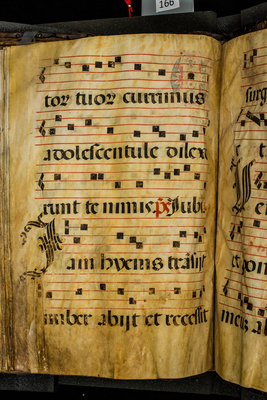 166
tor tuor currimus
adolescentule dilexe
runt te nimis. ps Iubi
Iam hyems trāsijt
imber abijt et recessit
surg
E t
I
et pon
meus ab